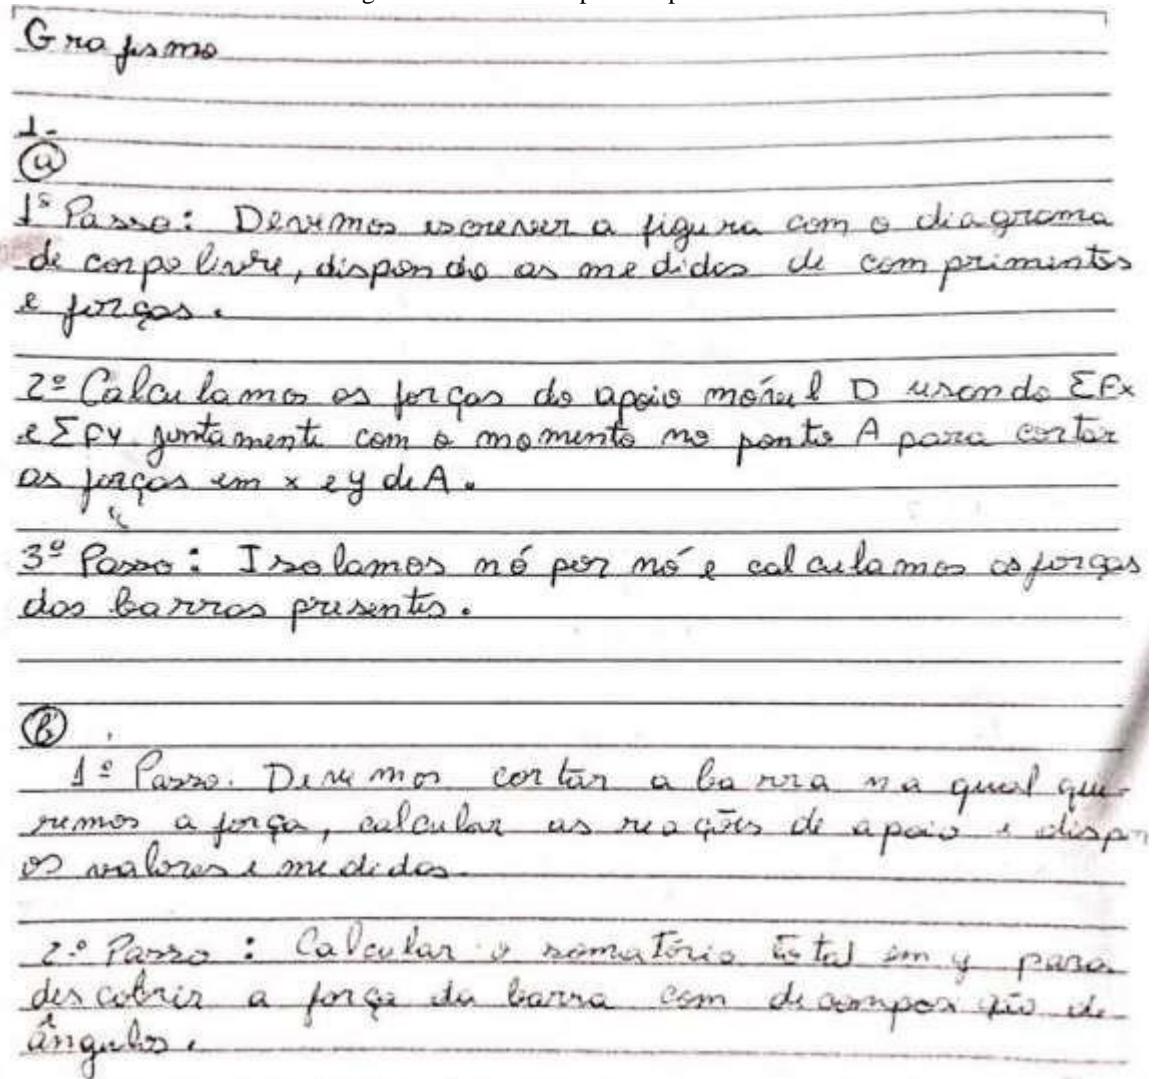 Grafismo
1-
a
1º Passo: Devemos escrever a figura com o diagrama
de corpo livre, dispondo as medidas de comprimentos
e forças.
2º Calculamos as forças do apoio móvel D usando ΣFx
e ΣFy juntamente com o momento no ponto A para cortar
as forças em x e y de A.
3º Passo: Isolamos nó por nó e calculamos as forças
das barras presentes.
b
1º Passo. Devemos cortar a barra na qual que-
remos a força, calcular as reações de apoio e dispor
os valores e medidas.
2º Passo: Calcular o somatório total em y para
descobrir a força da barra com decomposição de
ângulos.